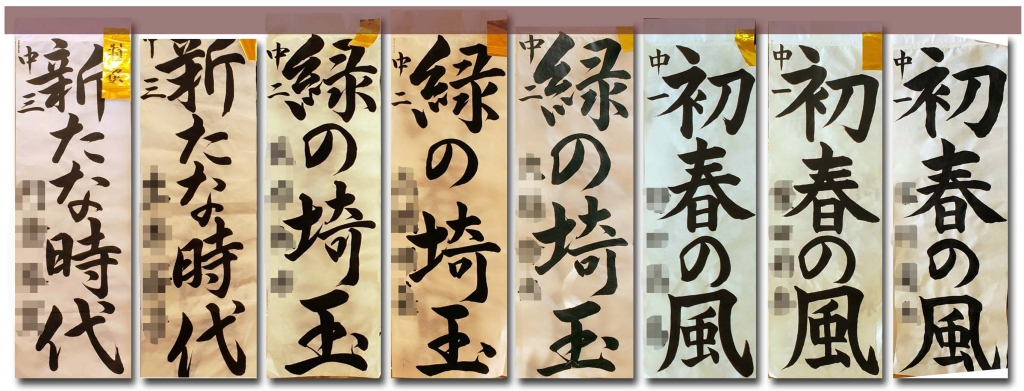 特選
新たな時代
中三
新たな時代
中三
緑の埼玉
中二
緑の埼玉
中二
緑の埼玉
中二
初春の風
中一
初春の風
中一
初春の風
中一